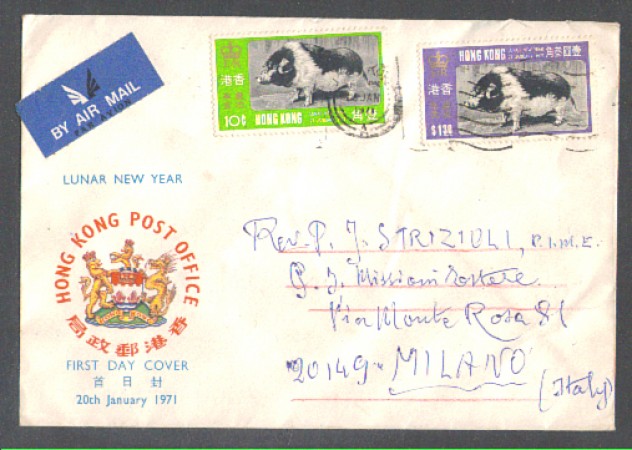 BY AIR MAIL
PAR AVION
香港
10¢ HONG KONG 壹角
HONG KONG 壹圓叁角
香港
$1.30
JAN
LUNAR NEW YEAR
HONG KONG POST OFFICE
香港郵政局
FIRST DAY COVER
首日封
20th January 1971
Rev. P. J. STRIZIOLI, P.I.M.E.
P. I. Missioni Estere
Via Monte Rosa 81
20149 - MILANO
(Italy)